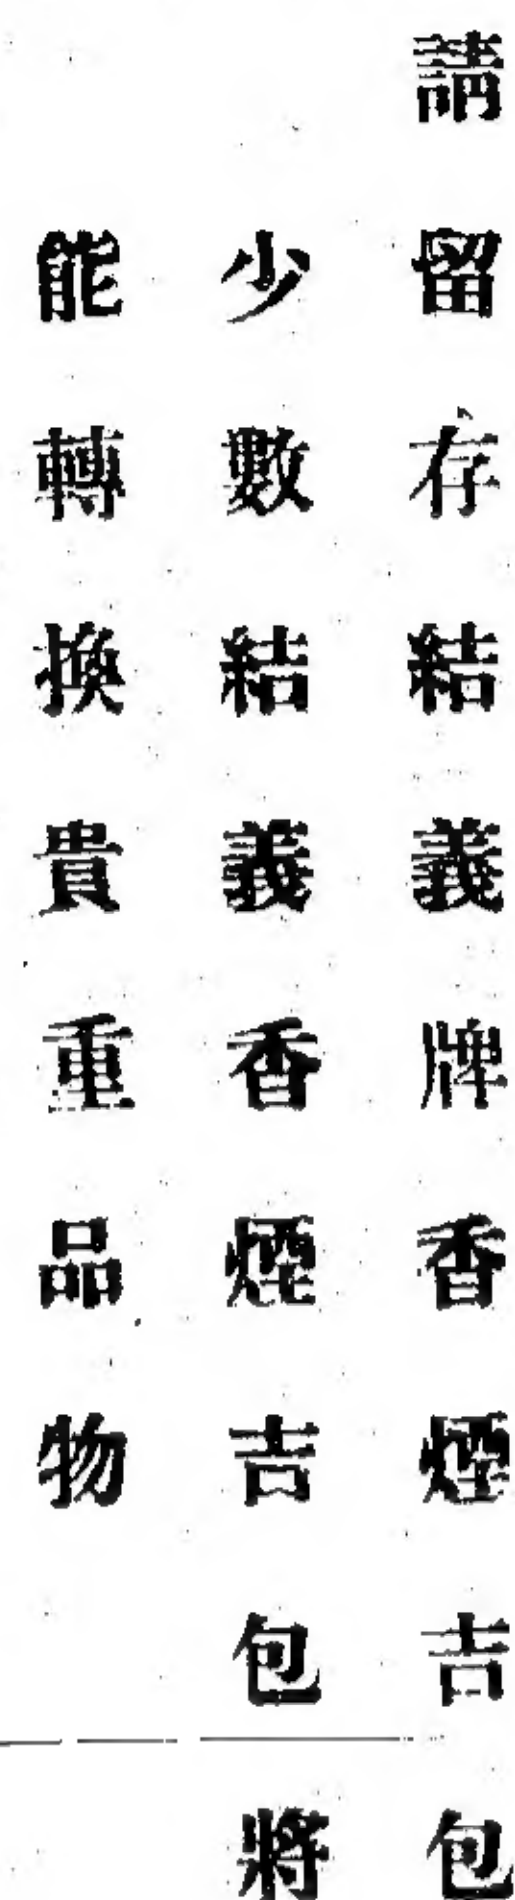 請留存結義牌香煙吉包
少數結義香煙吉包將
能轉換貴重品物